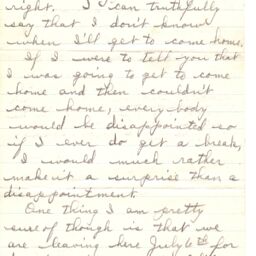 right. I can truthfully
say that I don't know
when I'll get to come home.
If I were to tell you that
I was going to get to come
home and then couldn't
come home, every body
would be disappointed so
if I ever do get a break,
I would much rather
make it a surprise than a
disappointment.
One thing I am pretty
sure of though is that we
are leaving here July 6th for